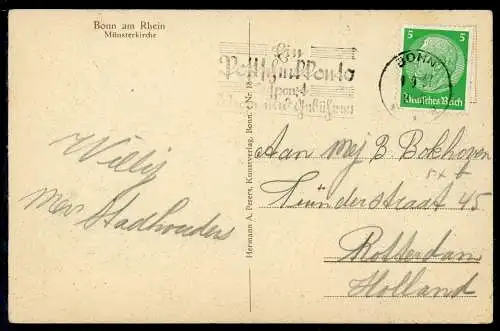 Bonn am Rhein
Münsterkirche
Ein
Postscheckkonto
spart
Gebühren
BONN
5 5
Deutsches Reich
Willij
mev Stadhouders
Hermann A. Peters, Kunstverlag, Bonn. Nr. 18
Aan mej B. Bokhoven
45
Rotterdam
Holland